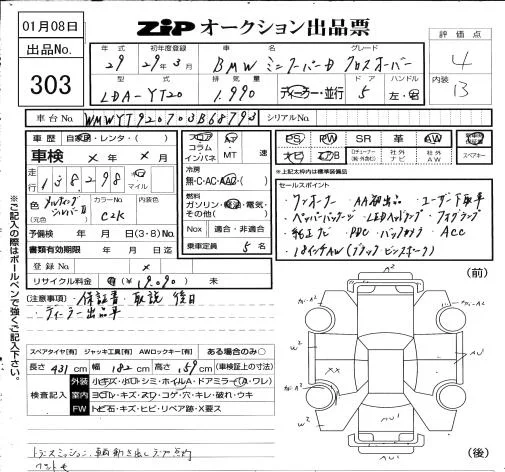 01月08日
ZIP オークション出品票
評価点
4
出品No.
303
年式 初年度登録 車名 グレード
29 29年3月 BMW ミニクーパーD クロスオーバー
内装
B
型式 排気量 ドア ハンドル
LDA-YT20 1.990 ディーラー・並行 5 左・右
車台No. WMWYT920703B68793 シリアルNo.
車歴 自家用・レンタ・( )
車検 × 年 × 月
走行 138,298 km マイル
フロア AT
コラム
インパネ ・MT 速
冷房
無・C・AC・AAC・( )
PS PW SR 革 AW
ナビ エアB 社外ナビ 社外AW スペアキー
※上記太枠内は標準装備品
色 メルティングシルバーⅡ
(元色)
カラーNo. C2K
内装色
燃料
ガソリン・軽油・電気・
その他( )
Nox 適合・非適合
乗車定員 5 名
予備検 年 月 日(3・8)No.
書類有効期限 年 月 日迄
登録No. ×
リサイクル料金 有(¥19,090) 未
セールスポイント
・ワンオーナー ・AA初出品 ・ユーザー下取車
・ペッパーパッケージ ・LEDヘッドランプ ・フォグランプ
・純正ナビ ・PDC ・バックカメラ ・ACC
・18インチAW(ブラックピンスポーク)
[注意事項]・保証書・取説 後日
・ディーラー出品車
※ご記入の際はボールペンで強くご記入下さい。
スペアタイヤ[有] ジャッキ工具[有] AWロックキー[有] ある場合のみ○
長さ 431 cm 幅 182 cm 高さ 159 cm (車検証上の寸法)
検査記入
外装 小キズ・小凹・シミ・ホイルA・ドアミラー(A・ワレ)
室内 ヨゴレ・キズ・スレ・コゲ・穴・キレ・破れ・ウキ
FW トビ石・キズ・ヒビ・リペア跡・X要ス
(前)
A2
A2
W2
AU
××
W2
AU
AU
(後)
トランスミッション、車輌動き出しランプ点灯